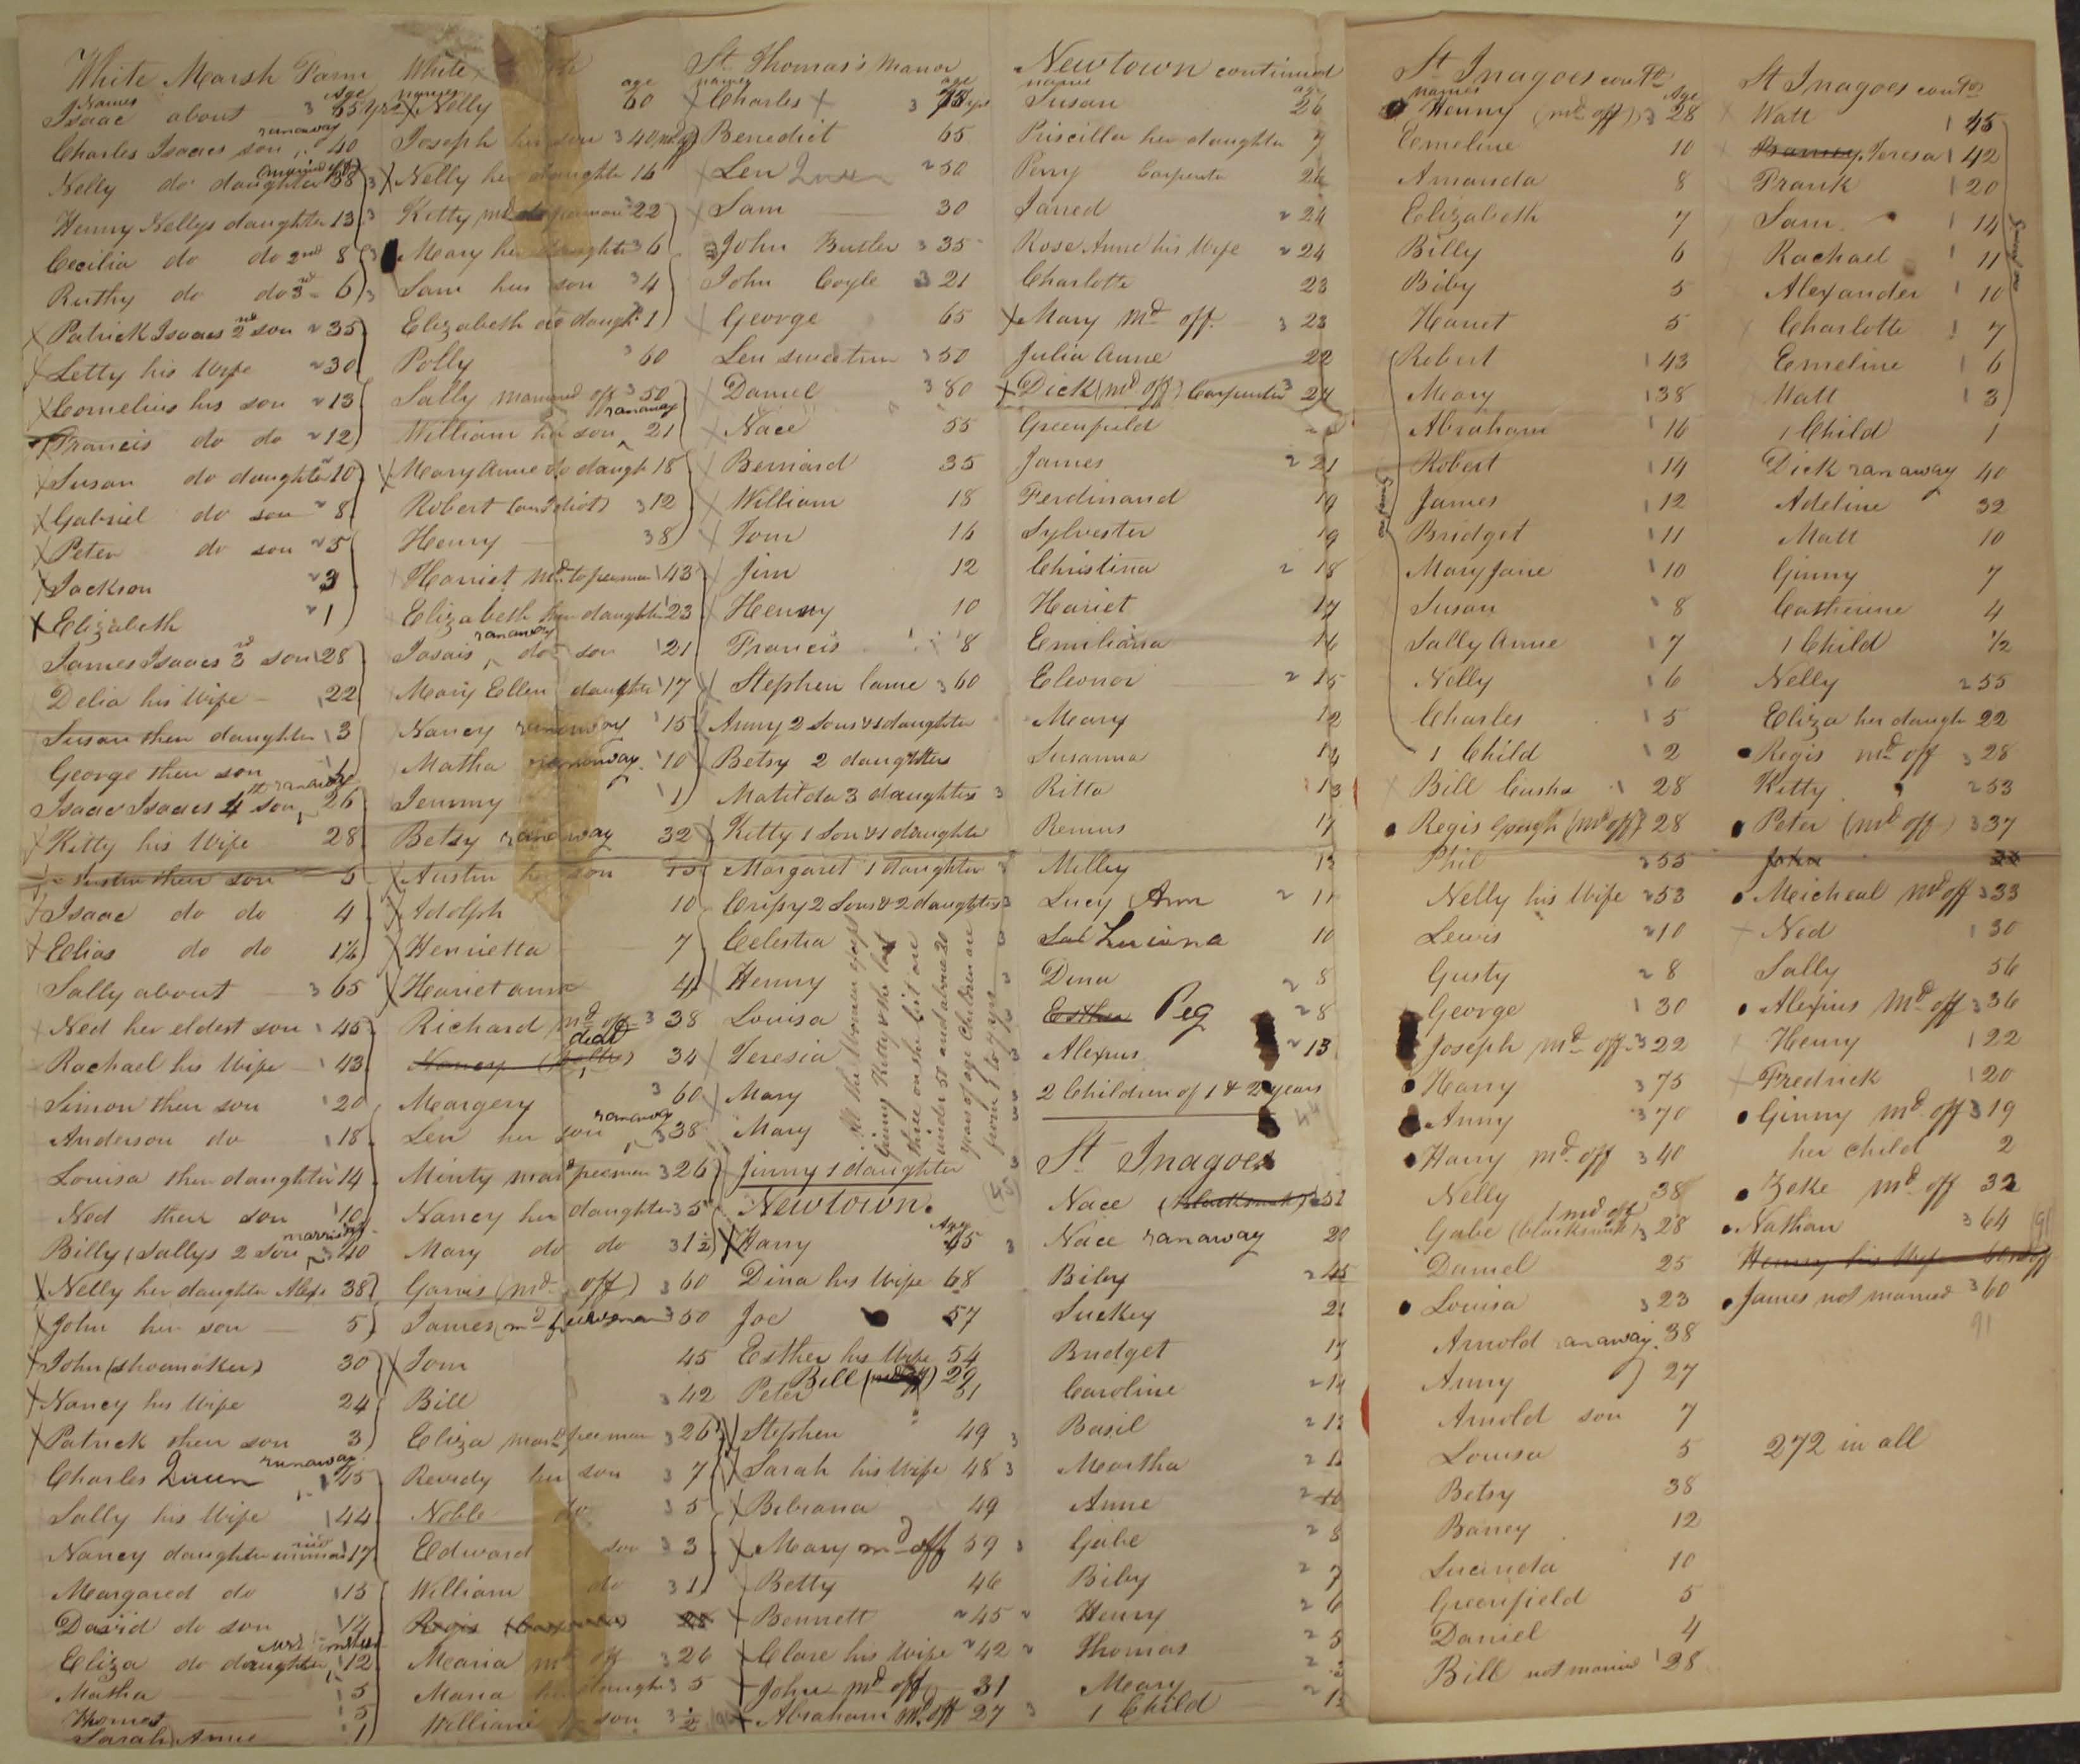 White Marsh Farm
Names Age
Isaac about 3 65 yrs
runaway
Charles Isaacs son 40
married off
Nelly do daughter 38 3
Henny Nellys daughter 13 3
Cecilia do do 2nd 8 3
Ruthy do do 3rd 6 3
Patrick Isaacs 2nd son 35
Letty his Wife 30
Cornelius his son 13
Francis do do 12
Susan do daughter 10
Gabriel do son 8
Peter do son 5
Jackson 3
Elizabeth 1
James Isaacs 3rd son 28
Delia his Wife 22
Susan their daughter 3
George their son 1
th runaway
Isaac Isaacs 4 son 26
Kitty his Wife 28
their son 5
Isaac do do 4
Elias do do 1½
Sally about 3 65
Ned her eldest son 45
Rachael his Wife 43
Simon their son 20
Anderson do 18
Louisa their daughter 14
Ned their son 10
married
Billy (Sallys 2 son 3 40
Nelly her daughter 38
John her son 5
John (shoemaker) 30
Nancy his Wife 24
Patrick their son 3
runaway
Charles Queen 45
Sally his Wife 44
Nancy daughter 17
Margared do 15
David do son 14
Eliza do daughter 12
Matha 5
Thomas 3
Sarah Anne 1
White
names age
Nelly 60
Joseph her son 3 40
Nelly her daughter 16
Kitty md to freeman 22
Mary her daughter 3 6
Sam her son 3 4
Elizabeth do daugh 1
Polly 3 60
Sally married off 3 50
runaway
William her son 21
Mary Anne do daugh 18
Robert (an Idiot) 3 12
Henry 3 8
Harriet md to freeman 43
Elizabeth her daughter 23
runaway
Isaais do son 21
Mary Ellen daughter 17
Nancy runaway 15
Matha runaway 10
Jemmy 1
Betsy runaway 32
Austin her son 15
Adolph 10
Henrietta 7
Harietann 4
Richard md off 3 38
dead
Nancy 34
Margery 3 60
runaway
Len her son 3 38
Minty mard freeman 3 26
Nancy her daughter 3 5
Mary do do 3 1½
Garvis (md off) 3 60
James (md freewoman 3 50
Tom 45
Bill 3 42
Eliza mard freeman 3 26
Reverdy her son 3 7
Noble do 3 5
Edward son 3 3
William do 3 1
Regis 28
Maria md off 3 26
Maria her daughter 3 5
William son 3 ½
St Thomas's Manor
names age
Charles 3 75 yrs
Benedict 65
Len Queen 50
Sam 30
John Butler 3 35
John Coyle 3 21
George 65
Len sweeton 3 50
Daniel 3 80
Nace 55
Bernard 35
William 18
Tom 16
Jim 12
Henry 10
Francis 8
Stephen lame 3 60
Anny 2 sons & 1 daughter
Betsy 2 daughters
Matilda 3 daughters 3
Kitty 1 Son & 1 daughter
Margaret 1 daughter 3
Crispy 2 Sons & 2 daughters 3
Celestia
Henny
Louisa
Teresia
Mary
Mary
Jinny 1 daughter
All the Women except
Ginny Kitty & the last
three on the list are
under 50 and above 20
years of age Children are
from 1 to 7 yrs
Newtown.
Age
Harry 65
Dina his Wife 68
Joe 57
Esther his Wife 54
Bill (md off) 29
Peter 31
Stephen 49 3
Sarah his Wife 48 3
Bibiana 49
Mary md off 59 3
Betty 46
Bennett 45
Clare his Wife 42
John md off 31
Abraham Md off 27 3
Newtown continued
name age
Susan 26
Priscilla her daughter 7
Perry Carpenter 26
Jarred 24
Rose Anne his Wife 24
Charlotte 23
Mary Md off 3 23
Julia Anne 22
Dick (md off) Carpenter 3 24
Greenfield
James 21
Ferdinand 19
Sylvester 19
Christina 18
Hariet 17
Emiliana 16
Eleonor 15
Mary 12
Susanna 14
Ritta 13
Remus 17
Milley 13
Lucy Ann 11
Sal Luciana 10
Dina 8
Esther Peg 8
Alexius 13
2 Children of 1 & 2 years
St Inagoes
Nace (blacksmith) 52
Nace ranaway 20
Biby 45
Suckey 21
Bridget 17
Caroline 14
Basil
Martha
Anne 10
Gabe 8
Biby 7
Henny 6
Thomas 5
Mary
1 Child
St Inagoes contd
names Age
Henny (md off) 3 28
Emeline 10
Amanda 8
Elizabeth 7
Billy 6
Biby 5
Hariet 5
Robert 43
Mary 38
Abraham 16
Robert 14
James 12
Bridget 11
Mary Jane 10
Susan 8
Sally Anne 7
Nelly 6
Charles 5
1 Child 2
Bill Cush 28
Regis Gough (md off) 28
Phil 55
Nelly his Wife 53
Lewis 10
Gusty 8
George 30
Joseph md off 3 22
Harry 3 75
Anny 3 70
Harry md off 3 40
Nelly 38
md off
Gabe (blacksmith) 3 28
Daniel 25
Louisa 3 23
Arnold ranaway 38
Anny 27
Arnold son 7
Louisa 5
Betsy 38
Baney 12
Lucinda 10
Greenfield 5
Daniel 4
Bill not married 28
St Inagoes contd
Watt 45
Teresa 42
Frank 20
Sam 14
Rachael 11
Alexander 10
Charlotte 7
Emeline 6
Watt 3
1 Child 1
Dick ranaway 40
Adeline 32
Matt 10
Ginny 7
Catherine 4
1 Child ½
Nelly 55
Eliza her daugh 22
Regis md off 3 28
Kitty 53
Peter (md off) 3 37
John
Meicheal Md off 3 33
Ned 30
Sally 56
Alexius Md off 3 36
Henny 22
Fredrick 20
Ginny Md off 3 19
her child 2
Zeke md off 32
Nathan 3 64
Henny his Wife
James not married 3 60
91
272 in all